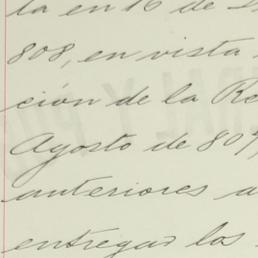 ta en 16 de
808, en vista
ción de la Re
Agosto de 80
anteriores a
entregad los